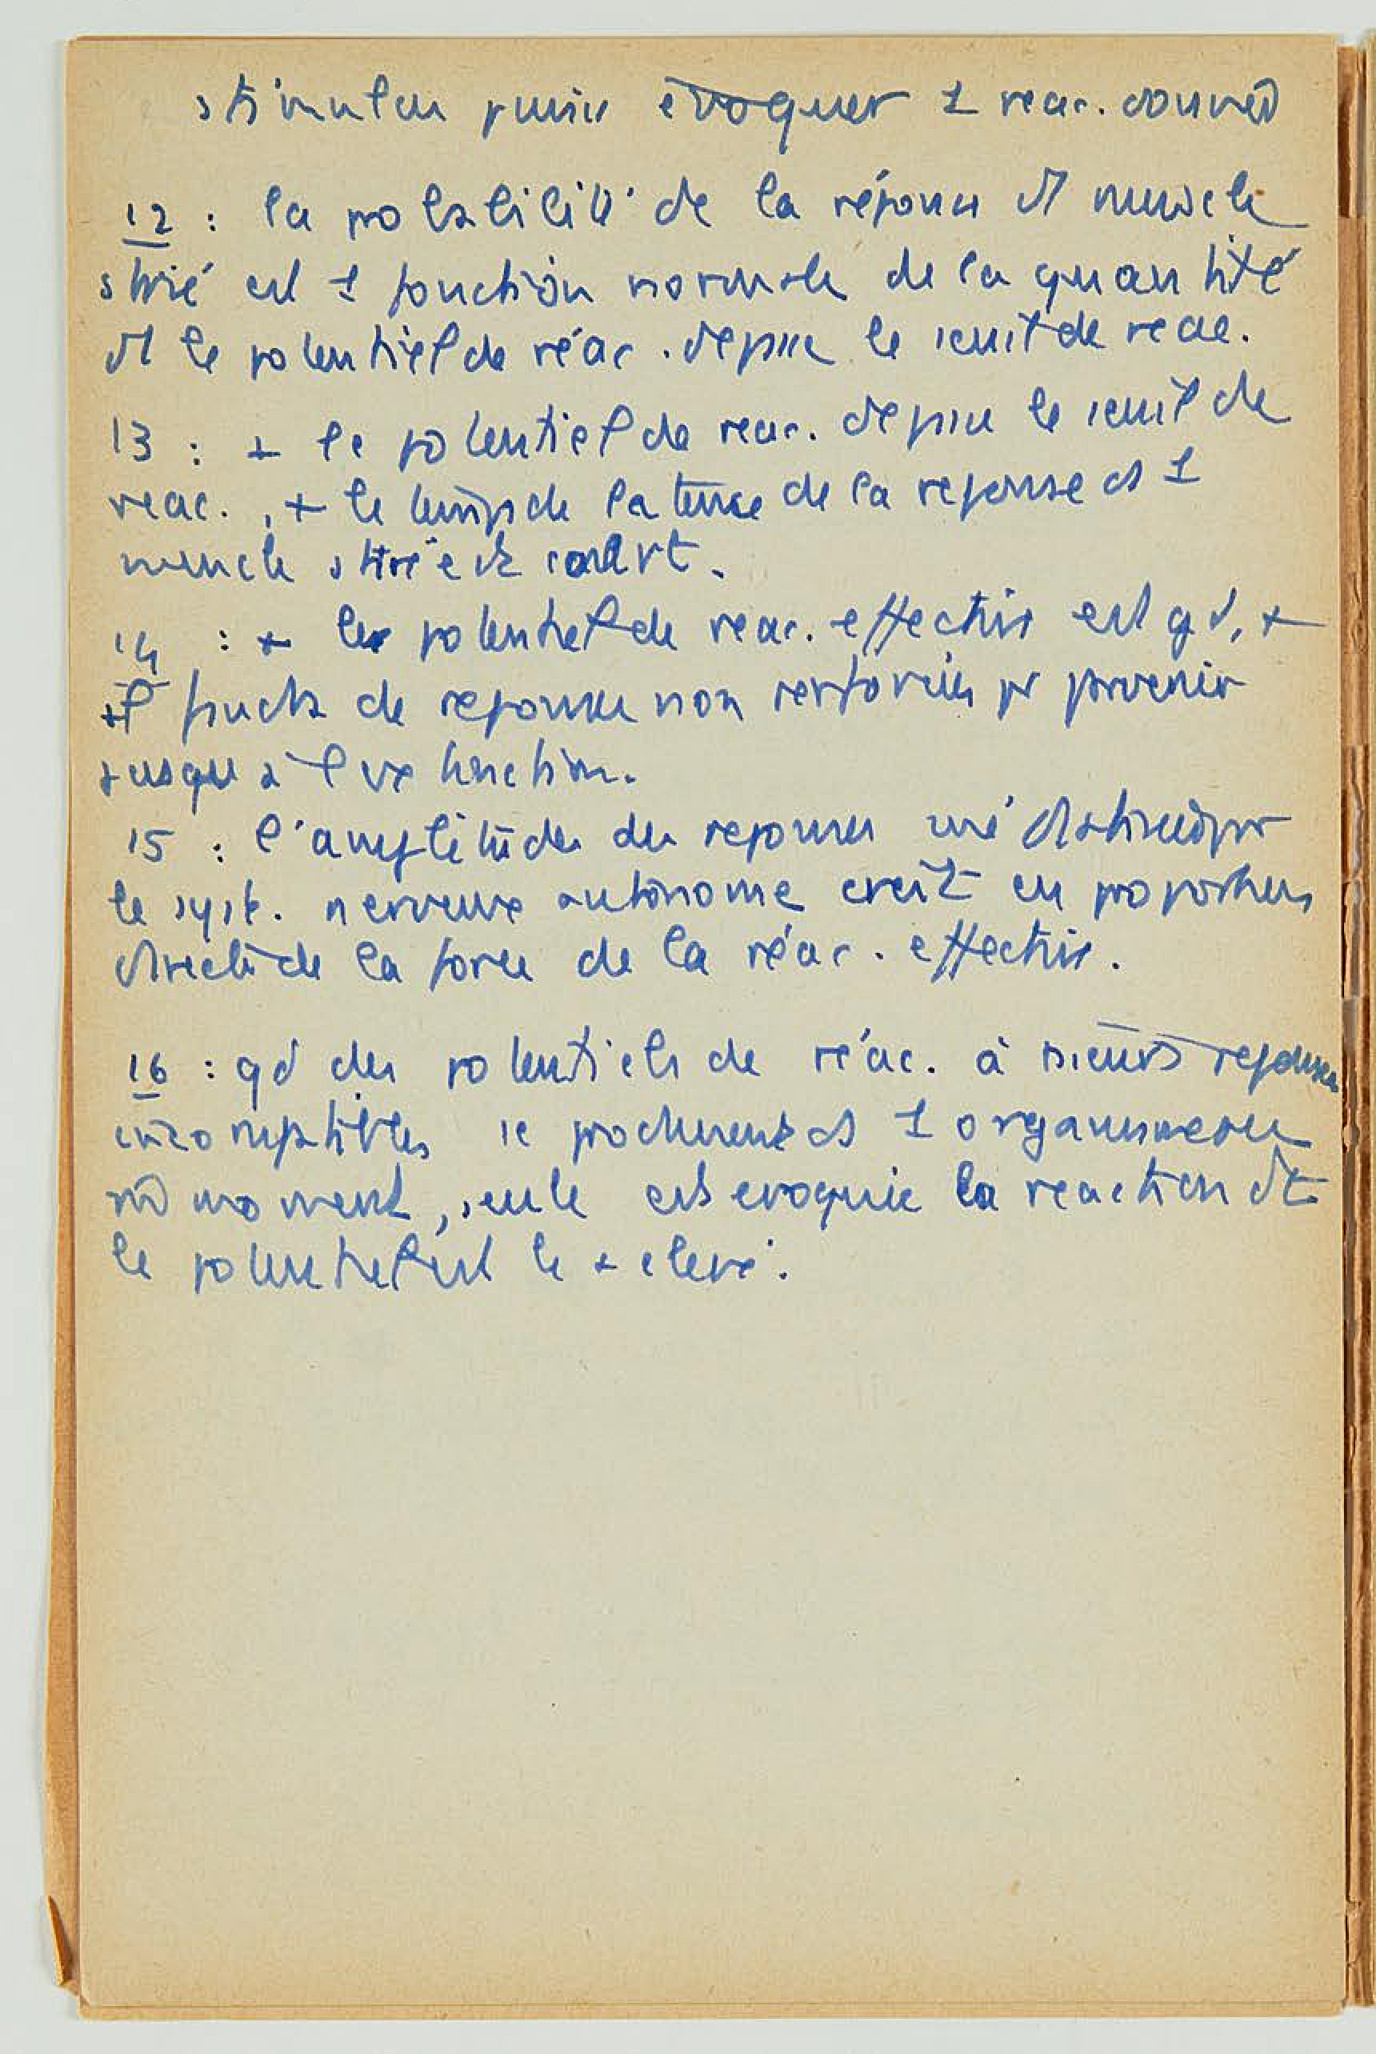 stimulus puisse évoquer 1 reac. donnée
12 : la probabilité de la réponse d1 muscle
strié est 1 fonction normale de la quantité
dt le potentiel de réac. dépasse le seuil de reac.
13 : + le potentiel de reac. dépasse le seuil de
reac., + le temps de latence de la reponse ds 1
muscle strié est court.
14 : + le potentiel de reac. effectif est gd, +
il faudra de reponses non renforcées pr parvenir
jusqu'à l'extinction.
15 : l'amplitude des reponses par
le syst. nerveux autonome croît en proportion
directe de la force de la réac. effective.
16 : qd des potentiels de réac. à reponses
incompatibles se produisent ds 1 organisme au
mê moment, seule est evoquée la reaction dt
le potentiel est le + elevé.